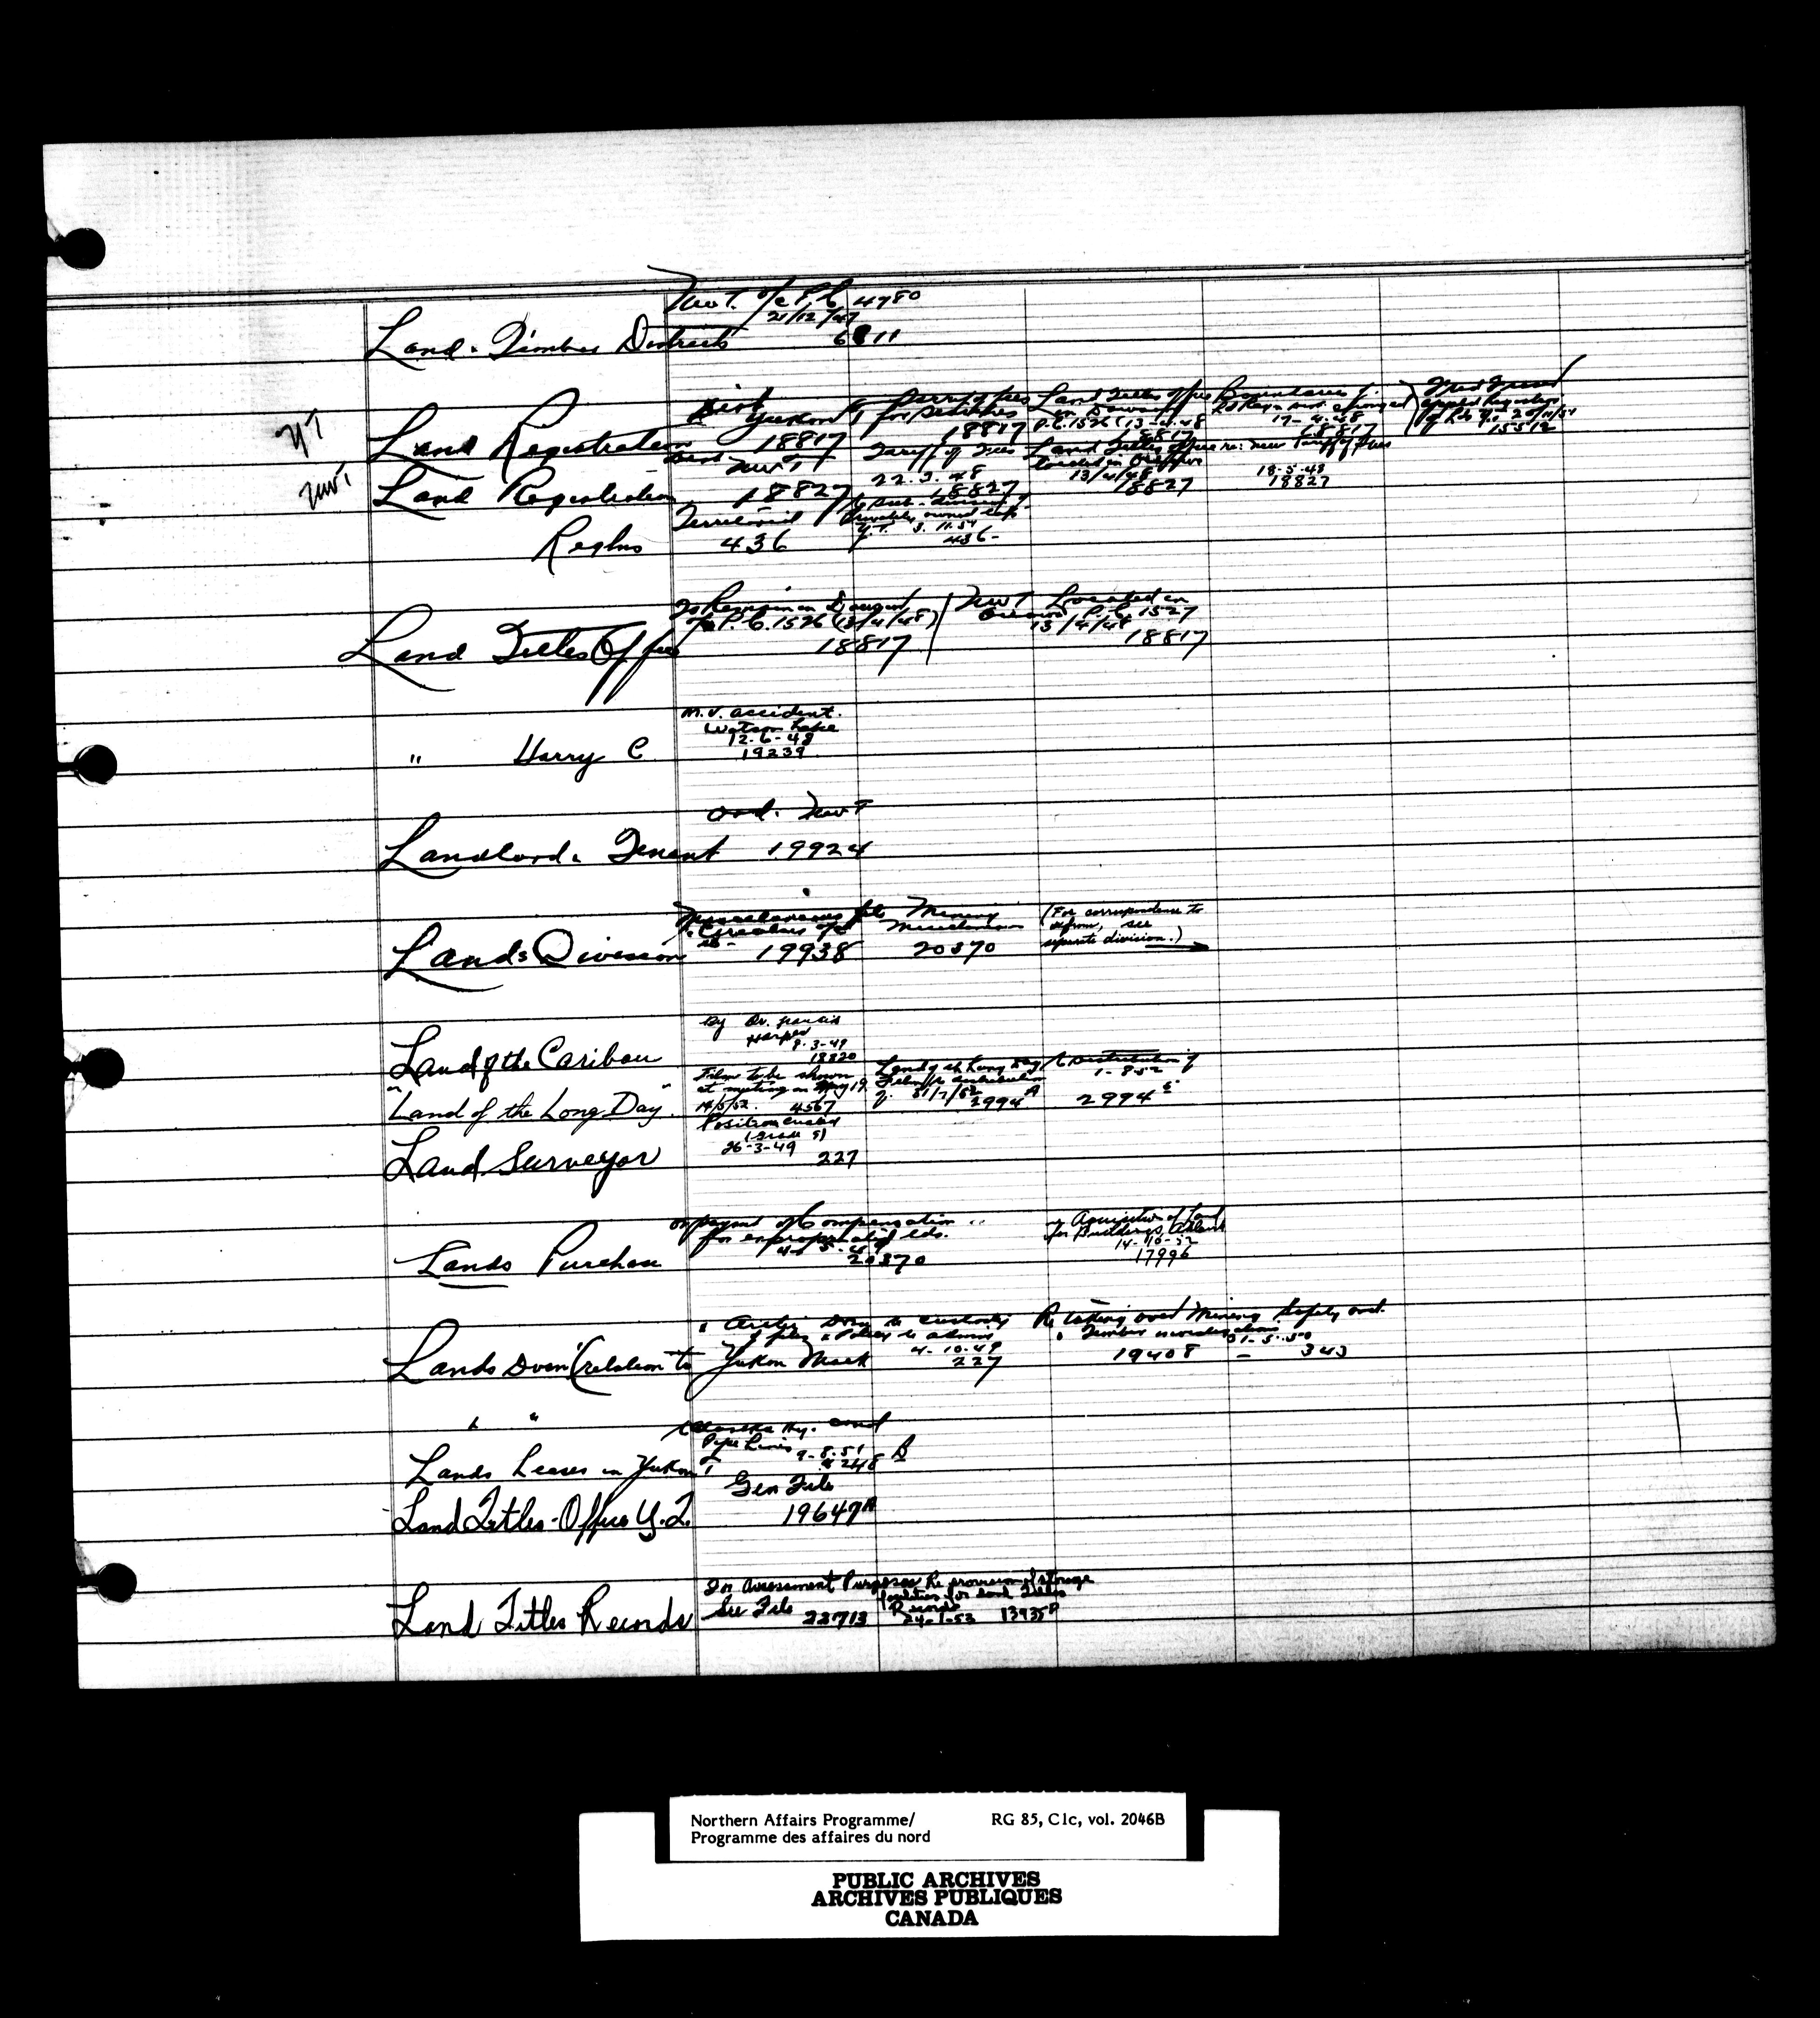 NWT. o/c P.C. 4980
21/12/47
Land & Timber Districts 6811
YT
Dist Yukon T
Tariff of fees for searches
Land Titles Office in Dawson
P.C. 1526 (13-4-48
Boundaries of
changed
17-4-48
Land Registration 18817 18817 18817 18817 15512
NWT
Dist NWT
Tariff of Fees
22.3.48
Land Titles Office
located in
13/4/48
re: new Tariff of Fees
18-5-48
Land Registration 18827 18827 18827 18827
Territorial
privately owned
Y.T. 3.11.54
Reglns 436 436-
To Remain in Dawson
P.C. 1526 (13/4/48)
NWT Located in
P.C. 1527
13/4/48
Land Titles Office 18817 18817
M.V. accident.
Watson Lake
12-6-48
" Harry C 19239
ord. NWT
Landlord & Tenant 19924
Miscellaneous file
Circulars
Mining
Miscellaneous
(For correspondence to
& from, see
separate division.)
Lands Division 19938 20370
By Dr. Francis
Harper
9-3-49
Land of the Caribou 18820
Films to be shown
at meeting on May 19
14/5/52. 4567
Land of the Long Day
Film distribution
31/7/52
2994 A
Distribution of
1-8-52
"Land of the Long Day" 2994 E
Position created
(Grade 5)
26-3-49
Land Surveyor 227
or paymt of Compensation
for expropriated lds.
Acquisition of Land
for Buildings
14-10-52
Lands Purchase 20370 17996
& Arctic Divn re custody
of files & Policy re admin
4-10-49
Re taking over Mining Safety ord.
& Timber
31-5-50
Lands Divn (relation to Yukon Mack 227 19408 - 343
" "
Alaska Hy. and
Pipe Lines
9-8-51
Lands Leases in Yukon T 4248 B
Gen File
Land Titles-Office Y.T. 19647A
In Assessment Purposes
See File 23713
Re provision of storage
facilities for Land Titles
Records
24-1-53 13935P
Land Titles Records
Northern Affairs Programme/
Programme des affaires du nord
RG 85, C1c, vol. 2046B
PUBLIC ARCHIVES
ARCHIVES PUBLIQUES
CANADA